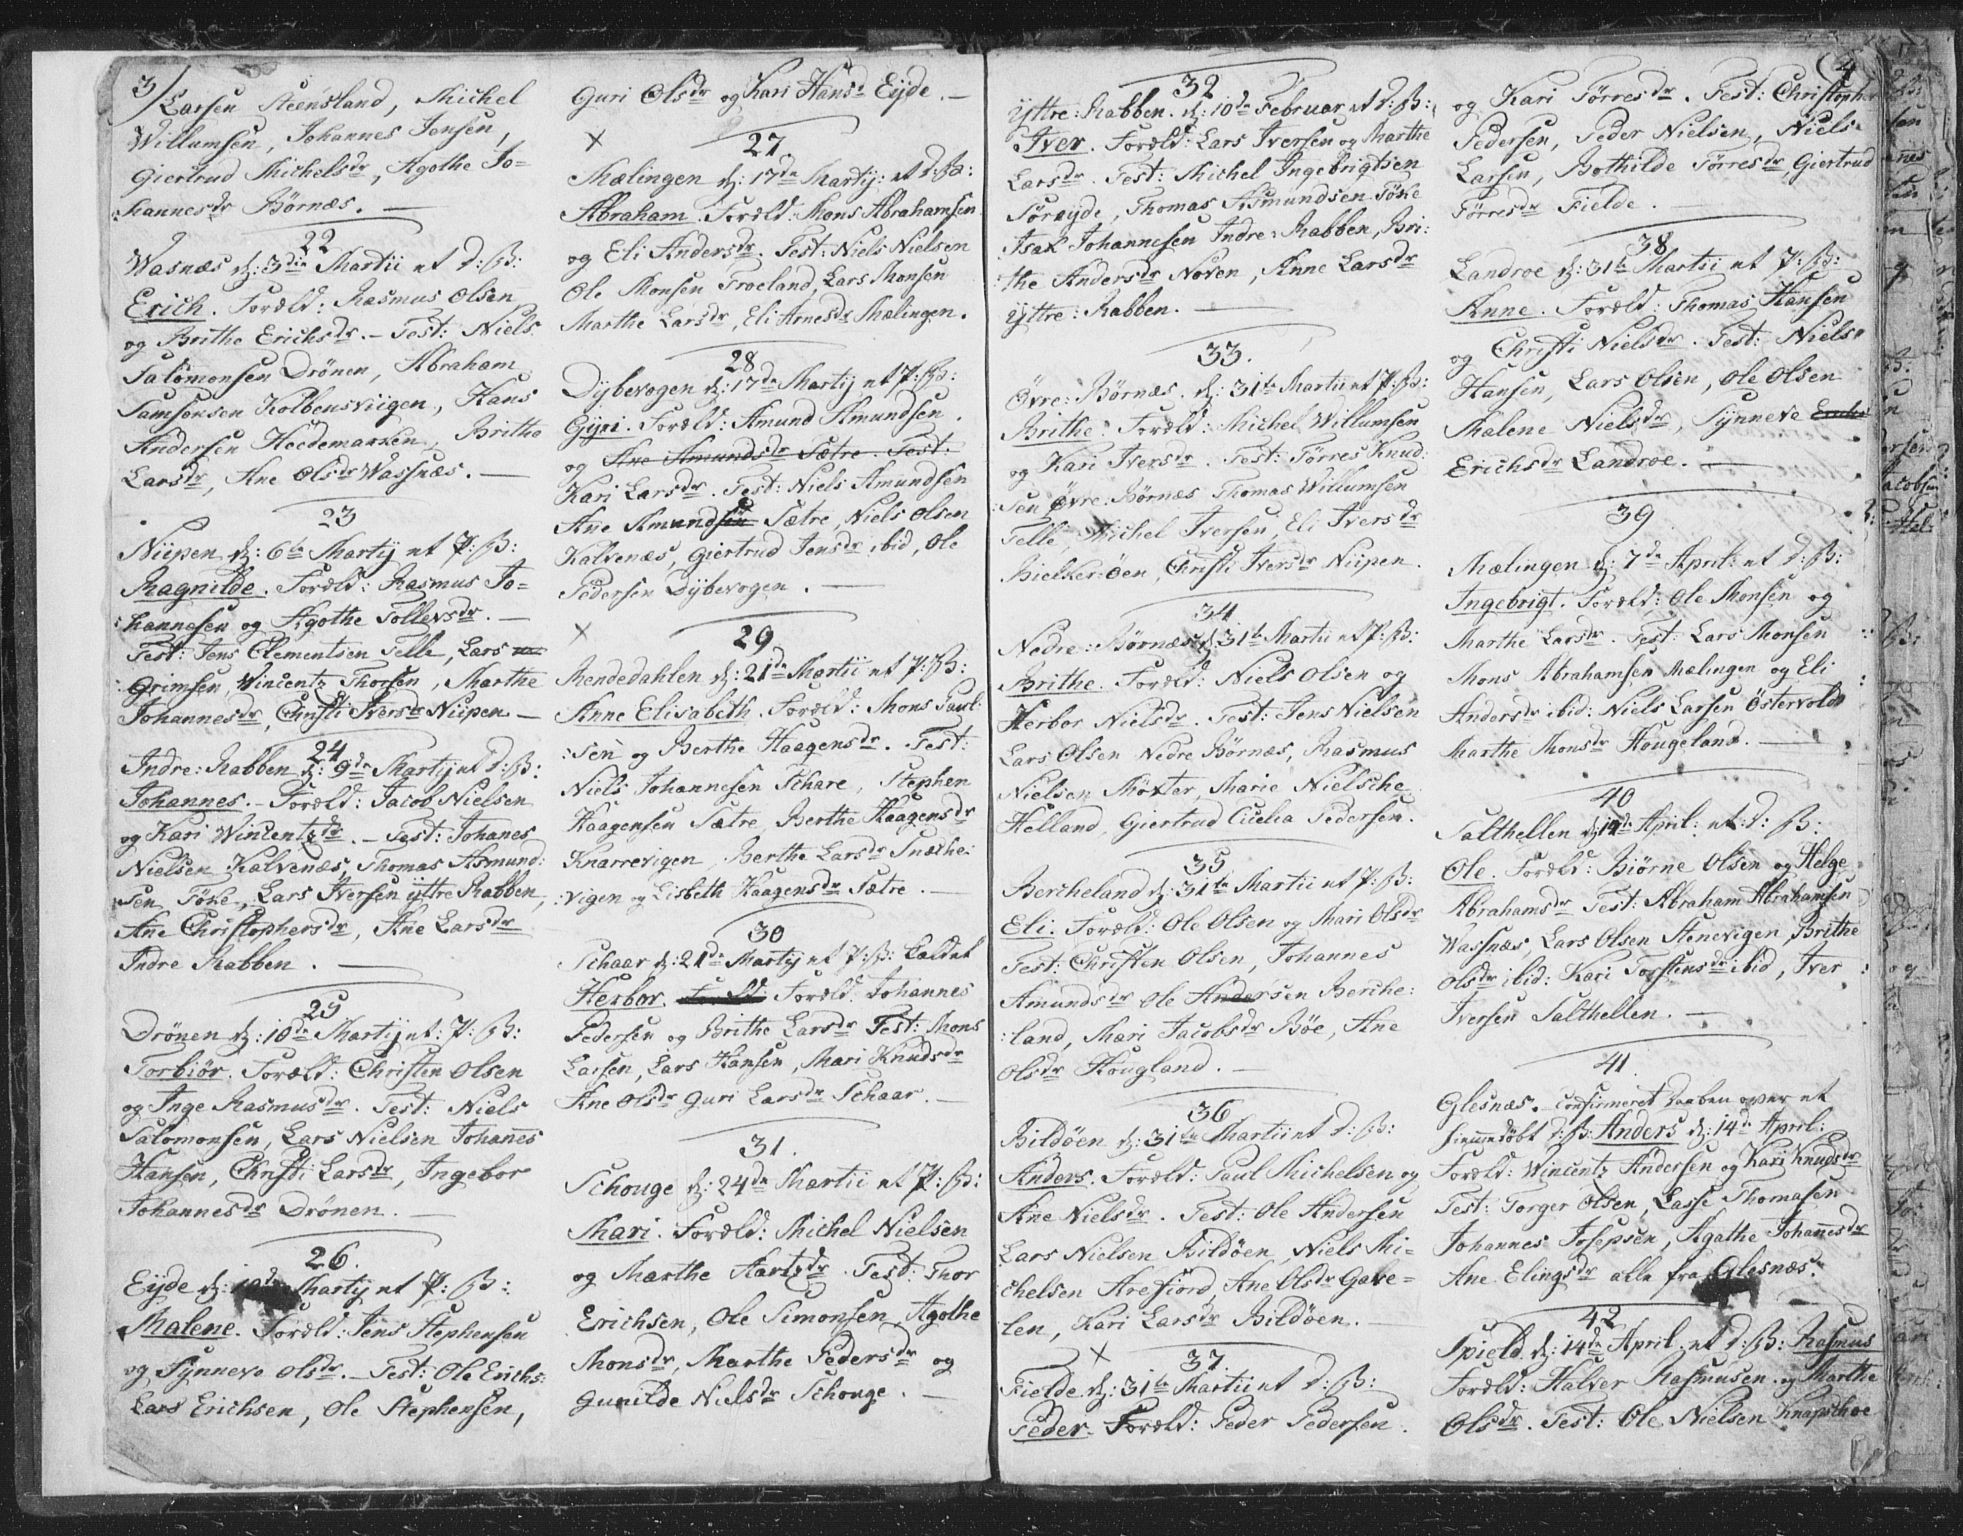 3/
Larsen Steensland, Michel
Willumsen, Johannes Jensen,
Giertrud Michelsdr, Agothe Jo-
hannesdr Børnæs. —
22
Wasnæs d: 3die Martii et D: B:
Erich. Foræld: Rasmus Olsen
og Brithe Erichsdr. — Test: Niels
Salomonsen Drönen, Abraham
Samsonsen Kolbensviigen, Hans
Andersen Heedemarken, Brithe
Larsdr, Ane Olsdr Wassnæs. —
23
Niipen d: 6te Martij et P: B:
Ragnilde. Foræld: Rasmus Jo-
hannesen og Agothe Tollevsdr. —
Test: Jens Clementsen Telle, Lars
Grimsen, Wincentz Thorsen, Marthe
Johannesdr, Christi Iversdr Niipen —
24
Indre: Rabben d: 9de Martij et D: B:
Johannes. — Foræld: Jacob Nielsen
og Kari Wincentzdr. — Test: Johanes
Nielsen Kalvenæs, Thomas Asmund:
sen Föhe, Lars Iversen ÿttre Rabben,
Ane Christophersdr, Ane Larsdr
Indre Rabben. —
25
Drönen d: 10de Martij et: P: B:
Torbiör. Foræld: Christen Olsen
og Inge Rasmusdr. Test: Niels
Salomonsen, Lars Nielsen Johanes
Hansen, Christi Larsdr, Ingebor
Johannesdr Drönen. —
26.
Eyde d: 10de Martij et P: B:
Malene. Foræld: Jens Stephensen
og Synneve Olsdr. — Test: Ole Erichs:
Lars Erichsen, Ole Stephensen,
Guri Olsdr og Kari Hansd Eyde. —
x
27.
Mælingen d: 17de Martij: et D: B:
Abraham. Foræld: Mons Abrahamsen
og Eli Andersdr. Test: Niels Nielsen
Ole Monsen Troeland, Lars Monsen
Marthe Larsdr, Eli Arnesdr Mælingen.
28
Dybevogen d: 17de Martij et P: B:
Gype. Foræld: Amund Amundsen
og Ane Amundsdr Sætre. Test:
Kari Larsdr. Test: Niels Amundsen
Ane Amundsen Sætre, Niels Olsen
Kalvenæs, Giertrud Jensdr ibid, Ole
Pedersen Dybevogen. —
x
29
Rendedahlen d: 21de Martii et P: B:
Anne Elisabeth. Foræld: Mons Paul:
sen og Berthe Haagensdr. Test:
Niels Johannesen Schare, Stephen
Haagensen Sætre, Berthe Haagensdr
Knarrevigen, Berthe Larsdr Snække:
vigen og Lisbeth Haagensdr Sætre. —
30
Schaar d: 21de Martij et P: B: kaldet
Herbor. Foræld: Johannes
Pedersen og Brithe Larsdr Test: Mons
Larsen, Lars Hansen, Mari Knudsdr
Ane Olsdr Guri Larsdr Schaar. —
31.
Schouge d: 24de Martii et P: B:
Mari. Foræld: Michel Nielsen
og Marthe Aartzdr. Test: Thor
Erichsen, Ole Simonsen, Agothe
Monsdr, Marthe Pedersdr og
Gunilde Nielsdr Schouge. —
32
Yttre: Rabben. d: 10de Februar et D: B:
Iver. Foræld: Lars Iversen og Marthe
Larsdr. Test: Michel Ingebrigtsen
Söreyde, Thomas Asmundsen Föhe
Isak Johannesen Indre: Rabben, Bri:
the Andersdr Noven, Anne Larsdr
Yttre: Rabben. —
33.
Övre: Børnæs. d: 31te Martii et P: B:
Brithe. Foræld: Michel Willumsen
og Kari Iversdr. Test: Törres Knud:
sen Övre: Børnæs Thomas Willumsen
Telle Michel Iversen, Eli Iversdr
Bielkeröen, Christi Iversdr Niipen.
34
Nedre: Børnæs d: 31te Martii et P: B:
Brithe. Foræld: Niels Olsen og
Herbor Nielsdr. Test: Jens Nielsen
Lars Olsen Nedre Børnæs, Rasmus
Nielsen Möxter, Marie Nielsche
Helland, Giertrud Cicelia Pedersen.
35
Bercheland d: 31te Martii et P: B:
Eli. Foræld: Ole Olsen og Mari Olsdr
Test: Christen Olsen, Johannes
Amundsdr Ole Andersen Berche:
land, Mari Jacobsdr Böe, Ane
Olsdr Hougland. —
36
Bildöen d: 31te Martii et D: B:
Anders. Foræld: Paul Michelsen og
Ane Nielsdr. Test: Ole Andersen
Lars Nielsen Bildöen, Niels Mi-
chelsen Arefiord, Ane Olsdr Gale-
len, Kari Larsdr Bildöen. —
x
37.
Fielde d: 31te Martii et D: B:
Peder. Foræld: Peder Pedersen
4
og Kari Törresdr. Test: Christopher
Pedersen, Peder Nielsen, Niels
Larsen, Bothilde Törresdr, Giertrud
Törresdr Fielde.
38
Landroe d: 31te Martii et P: B:
Anne. Foræld: Thomas Hansen
og Christi Nielsdr. Test: Niels
Hansen, Lars Olsen, Ole Olsen
Malene Nielsdr, Synneve Erichs
Erichsdr Landroe. —
39
Mælingen d: 7de April: et D: B:
Ingebrigt. Foræld: Ole Monsen og
Marthe Larsdr. Test: Lars Monsen
Mons Abrahamsen Mælingen og Eli
Andersdr ibid: Niels Larsen Östervold
Marthe Monsdr Hougeland. —
40
Salthellen d: 14de April: et D: B:
Ole. Foræld: Biörne Olsen og Helge
Abrahamsdr Test: Abraham Abrahamsen
Wassnæs, Lars Olsen Stenevigen, Brithe
Olsdr ibid: Kari Torstensdr ibid, Iver
Iversen Salthellen. —
41.
Glesnæs. Confirmeret Daaben over et
hiemmedöbt D: B: Anders d: 14de April:
Foræld: Wincentz Andersen og Kari Knudsdr
Test: Torger Olsen, Lasse Thomasen
Johannes Josepsen, Agathe Johannesdr
Ane Elingsdr alle fra Glesnæs.
42
Spield d: 14de April et D: B: Rasmus
Foræld: Halver Rasmusen og Marthe
Olsdr. Test: Ole Nielsen Knapschoe